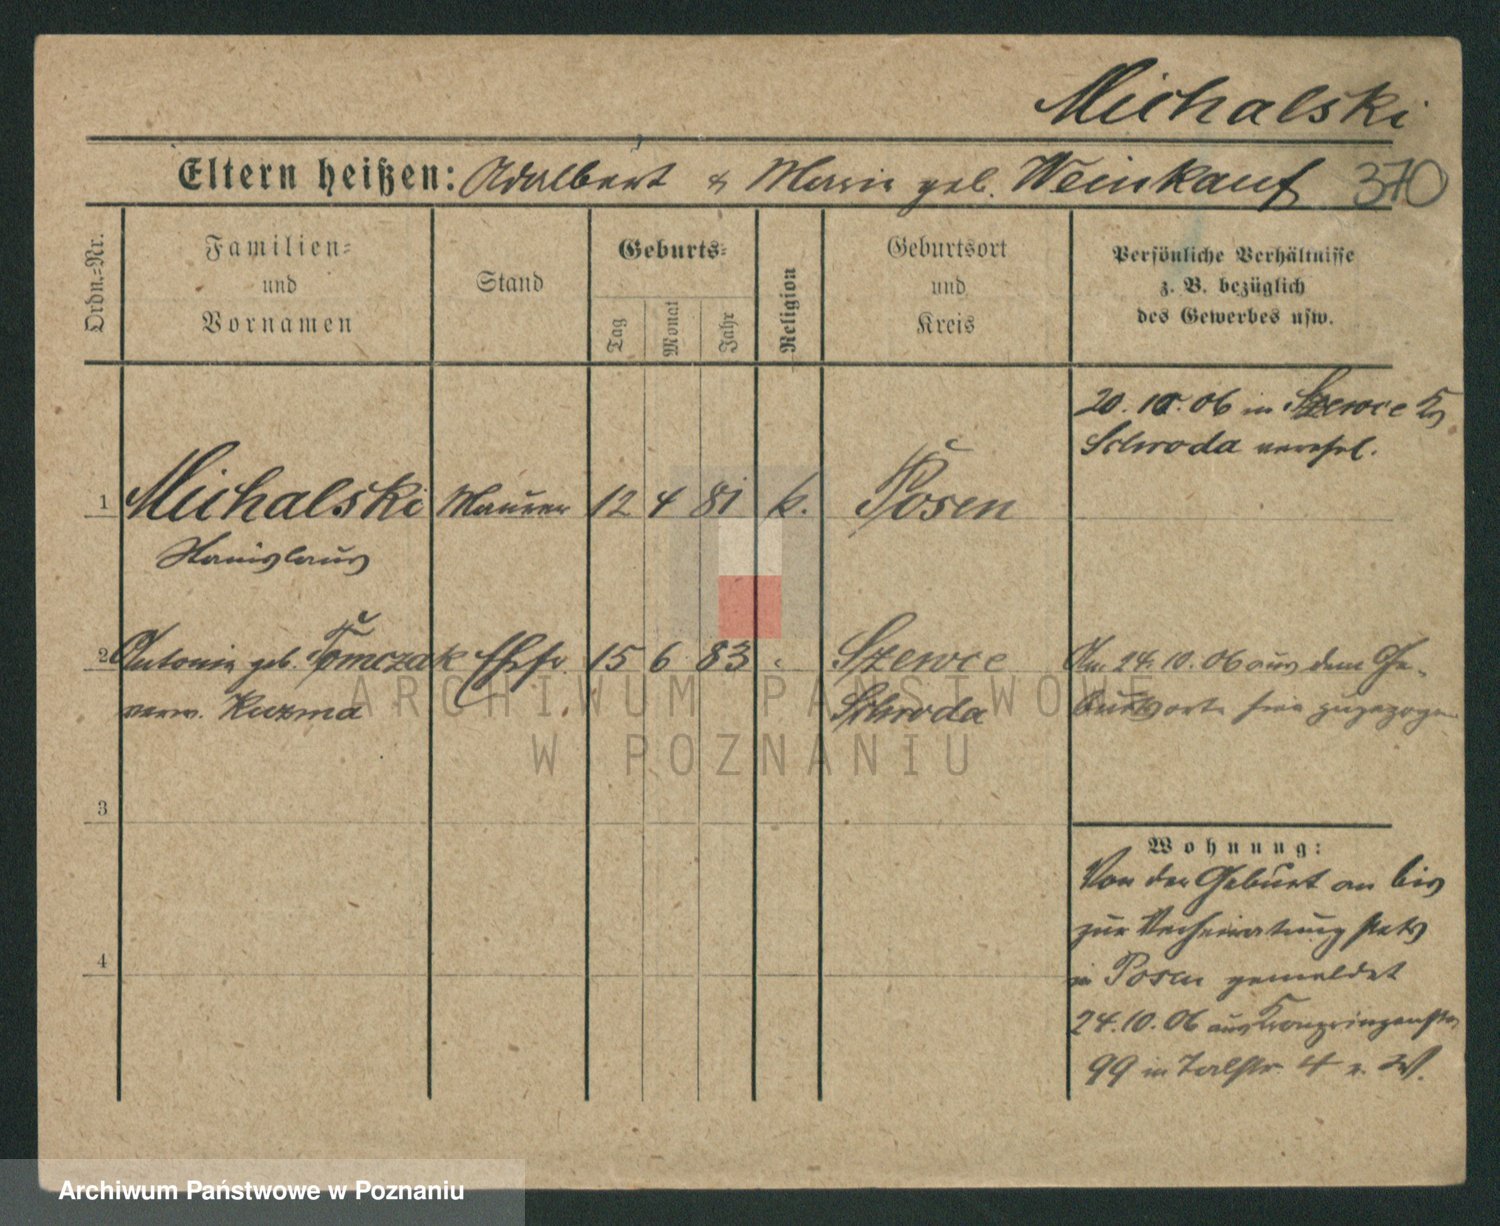 Michalski
Eltern heißen: Adalbert & Marie geb. Weinkauf 370
Ordn.-Nr.
Familien- und Vornamen
Stand
Geburts-
Tag
Monat
Jahr
Religion
Geburtsort und Kreis
Persönliche Verhältnisse
z. B. bezüglich
des Gewerbes usw.
20.10.06 in Szewce Krs
Schroda verehel.
1 Michalski Maurer 12 4 81 k. Posen
Stanislaus
2 Antonie geb. Tomczak Ehefr. 15 6 83 Szewce Am 24.10.06 aus dem Ge-
verw. Kuzma Schroda burtsorte hier zugezogen
3
4
Wohnung:
Von der Geburt an bis
zur Verheiratung stets
in Posen gemeldet
24.10.06 aus Kronprinzenstr.
99 in Talstr. 4 e. W.
ARCHIWUM PAŃSTWOWE
W POZNANIU
Archiwum Państwowe w Poznaniu